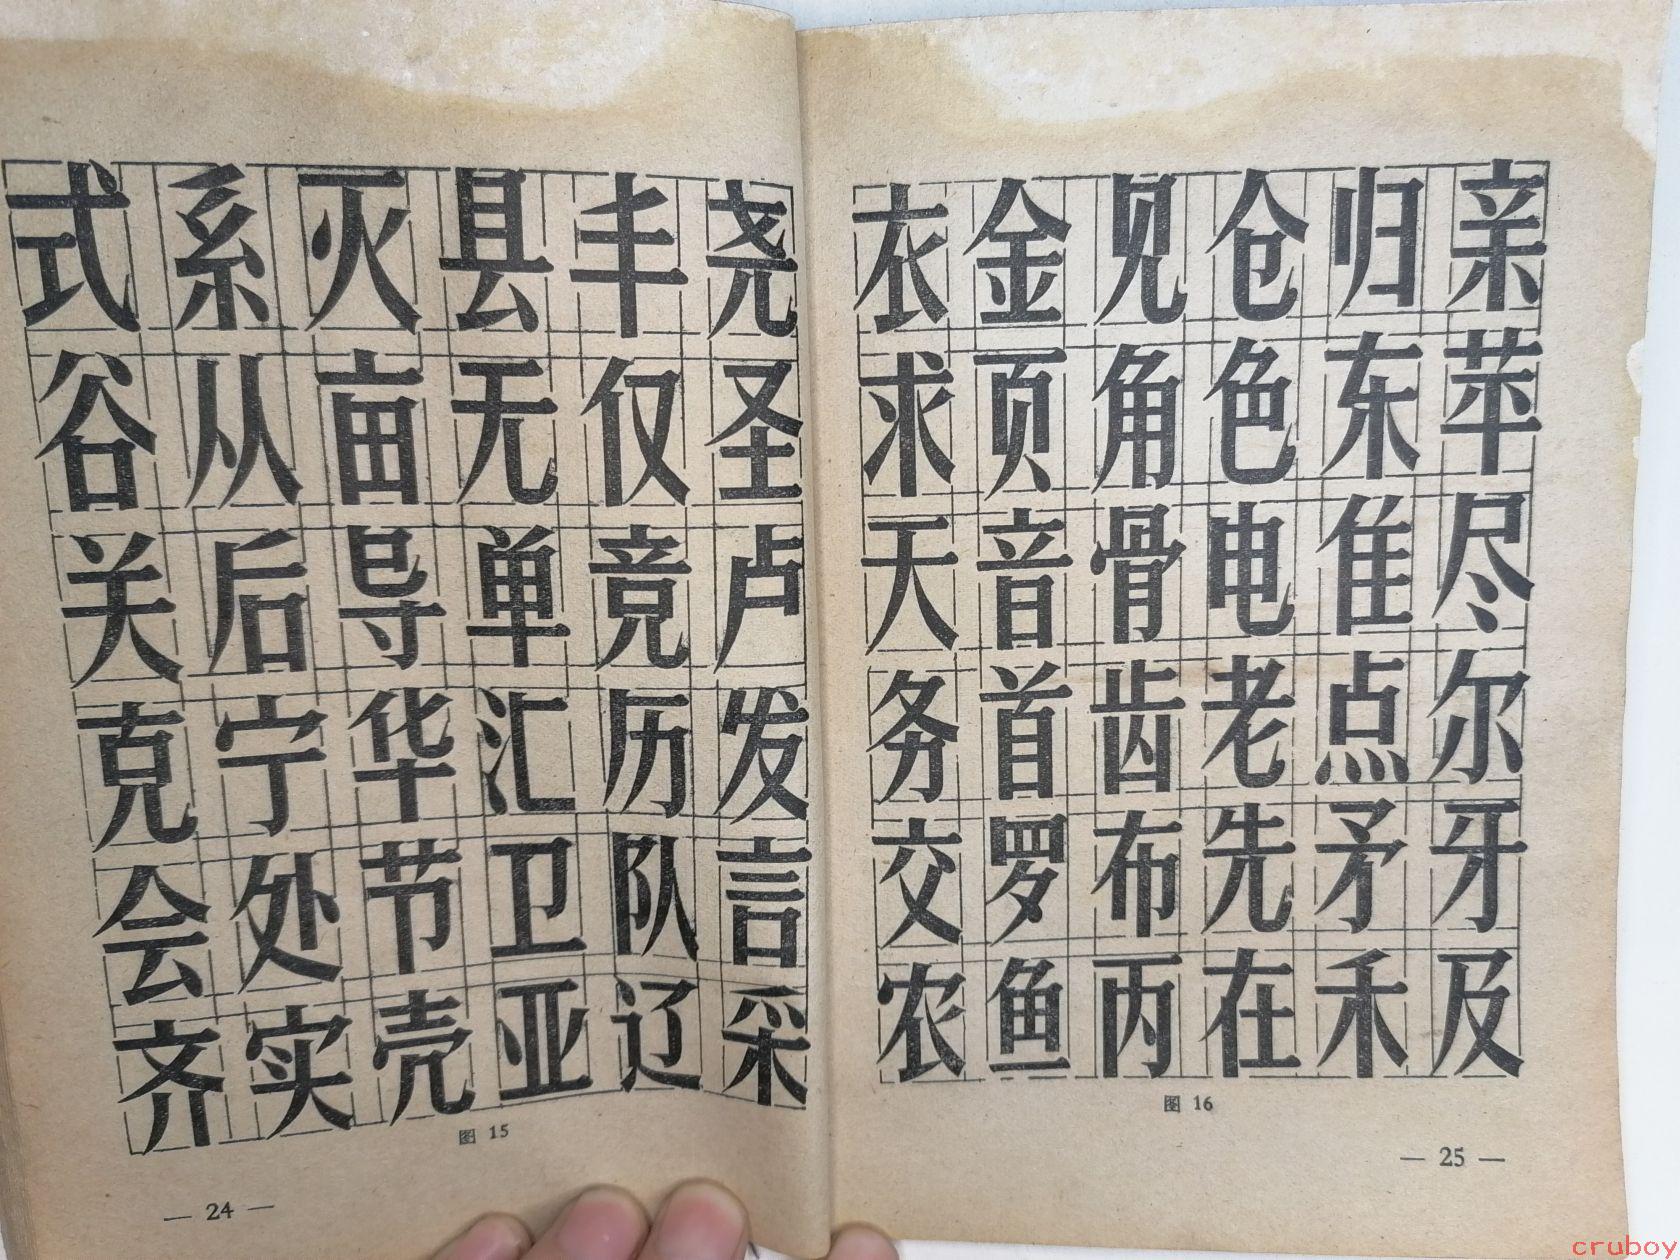 式系灭县丰尧
谷从亩无仅圣
关后导单竞卢
克宁华汇历发
会处节卫队言
齐实壳亚辽采
图 15
— 24 —
衣金见仓归亲
求页角色东苹
天音骨电隹尽
务首齿老点尔
交罗布先矛牙
农鱼丙在禾及
图 16
— 25 —
cruboy